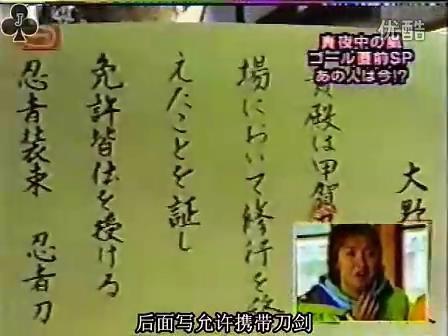 优酷
真夜中の嵐
ゴール直前SP
あの人は今!?
大野
貴殿は甲賀
場において修行を終
えたことを証し
免許皆伝を授ける
忍者装束 忍者刀
后面写允许携带刀剑